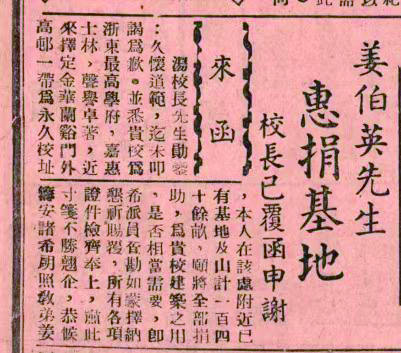 姜伯英先生
惠捐基地
校長已覆函申謝
來函
湯校長先生勛鑒
：久懷道範，迄未叩
謁爲歉。並悉貴校爲
浙東最高學府，嘉惠
士林，聲譽卓著，近
來擇定金華蘭谿門外
高邨一帶爲永久校址
，本人在該處附近已
有基地及山計一百四
十餘畝，願將全部捐
助，爲貴校建築之用
，是否相當需要，卽
希派員查勘如蒙擇納
懇祈賜覆，所有各項
證件檢齊奉上，肅此
寸箋不勝翹企，恭候
籌安諸希朗照敎弟姜